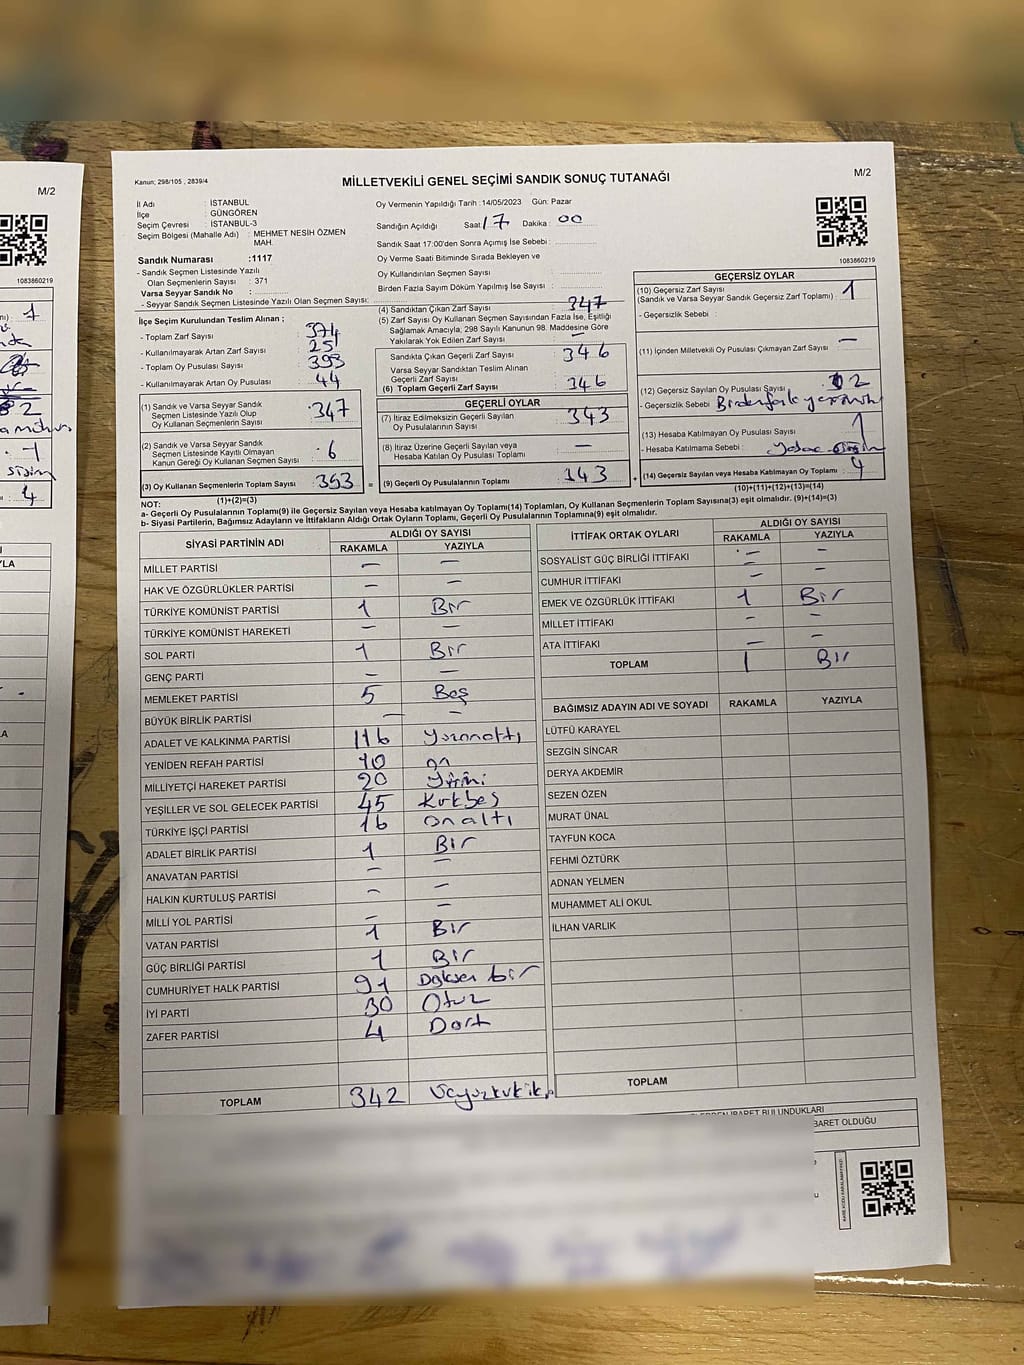 M/2
1083860219
Kanun; 298/105 , 2839/4
MİLLETVEKİLİ GENEL SEÇİMİ SANDIK SONUÇ TUTANAĞI
M/2
İl Adı : İSTANBUL
İlçe : GÜNGÖREN
Seçim Çevresi : İSTANBUL-3
Seçim Bölgesi (Mahalle Adı) : MEHMET NESİH ÖZMEN
MAH.
Sandık Numarası :1117
- Sandık Seçmen Listesinde Yazılı
Olan Seçmenlerin Sayısı : 371
Varsa Seyyar Sandık No :
- Seyyar Sandık Seçmen Listesinde Yazılı Olan Seçmen Sayısı:
İlçe Seçim Kurulundan Teslim Alınan ;
- Toplam Zarf Sayısı
- Kullanılmayarak Artan Zarf Sayısı 25
- Toplam Oy Pusulası Sayısı 393
- Kullanılmayarak Artan Oy Pusulası 44
(1) Sandık ve Varsa Seyyar Sandık
Seçmen Listesinde Yazılı Olup
Oy Kullanan Seçmenlerin Sayısı 347
(2) Sandık ve Varsa Seyyar Sandık
Seçmen Listesinde Kayıtlı Olmayan
Kanun Gereği Oy Kullanan Seçmen Sayısı 6
(3) Oy Kullanan Seçmenlerin Toplam Sayısı 353 =
(1)+(2)=(3)
Oy Vermenin Yapıldığı Tarih :14/05/2023 Gün: Pazar
Sandığın Açıldığı Saat 17 Dakika : 00
Sandık Saat 17:00'den Sonra Açımış İse Sebebi :
Oy Verme Saati Bitiminde Sırada Bekleyen ve
Oy Kullandırılan Seçmen Sayısı :
Birden Fazla Sayım Döküm Yapılmış İse Sayısı :
(4) Sandıktan Çıkan Zarf Sayısı 347
(5) Zarf Sayısı Oy Kullanan Seçmen Sayısından Fazla İse, Eşitliği
Sağlamak Amacıyla, 298 Sayılı Kanunun 98. Maddesine Göre
Yakılarak Yok Edilen Zarf Sayısı —
Sandıkta Çıkan Geçerli Zarf Sayısı 346
Varsa Seyyar Sandıktan Teslim Alınan
Geçerli Zarf Sayısı
(6) Toplam Geçerli Zarf Sayısı 346
GEÇERLİ OYLAR
(7) İtiraz Edilmeksizin Geçerli Sayılan
Oy Pusulasının Sayısı 343
(8) İtiraz Üzerine Geçerli Sayılan veya
Hesaba Katılan Oy Pusulası Toplamı —
(9) Geçerli Oy Pusulalarının Toplamı 343 +
1083860219
GEÇERSİZ OYLAR
(10) Geçersiz Zarf Sayısı
(Sandık ve Varsa Seyyar Sandık Geçersiz Zarf Toplamı) : 1
- Geçersizlik Sebebi :
(11) İçinden Milletvekili Oy Pusulası Çıkmayan Zarf Sayısı —
(12) Geçersiz Sayılan Oy Pusulası Sayısı 2
- Geçersizlik Sebebi
(13) Hesaba Katılmayan Oy Pusulası Sayısı 1
- Hesaba Katılmama Sebebi :
(14) Geçersiz Sayılan veya Hesaba Katılmayan Oy Toplamı 4
(10)+(11)+(12)+(13)=(14)
NOT:
a- Geçerli Oy Pusulalarının Toplamı(9) ile Geçersiz Sayılan veya Hesaba katılmayan Oy Toplamı(14) Toplamları, Oy Kullanan Seçmenlerin Toplam Sayısına(3) eşit olmalıdır. (9)+(14)=(3)
b- Siyasi Partilerin, Bağımsız Adayların ve İttifakların Aldığı Ortak Oyların Toplamı, Geçerli Oy Pusulalarının Toplamına(9) eşit olmalıdır.
SİYASİ PARTİNİN ADI ALDIĞI OY SAYISI
RAKAMLA YAZIYLA
MİLLET PARTİSİ — —
HAK VE ÖZGÜRLÜKLER PARTİSİ — —
TÜRKİYE KOMÜNİST PARTİSİ 1 Bir
TÜRKİYE KOMÜNİST HAREKETİ — —
SOL PARTİ 1 Bir
GENÇ PARTİ — —
MEMLEKET PARTİSİ 5 Beş
BÜYÜK BİRLİK PARTİSİ — —
ADALET VE KALKINMA PARTİSİ 116 Yüzonaltı
YENİDEN REFAH PARTİSİ 10 On
MİLLİYETÇİ HAREKET PARTİSİ 20 Yirmi
YEŞİLLER VE SOL GELECEK PARTİSİ 45 Kırkbeş
TÜRKİYE İŞÇİ PARTİSİ 16 Onaltı
ADALET BİRLİK PARTİSİ 1 Bir
ANAVATAN PARTİSİ — —
HALKIN KURTULUŞ PARTİSİ — —
MİLLİ YOL PARTİSİ — —
VATAN PARTİSİ 1 Bir
GÜÇ BİRLİĞİ PARTİSİ 1 Bir
CUMHURİYET HALK PARTİSİ 91 Doksan bir
İYİ PARTİ 30 Otuz
ZAFER PARTİSİ 4 Dört
TOPLAM 342
İTTİFAK ORTAK OYLARI ALDIĞI OY SAYISI
RAKAMLA YAZIYLA
SOSYALİST GÜÇ BİRLİĞİ İTTİFAKI — —
CUMHUR İTTİFAKI — —
EMEK VE ÖZGÜRLÜK İTTİFAKI 1 Bir
MİLLET İTTİFAKI — —
ATA İTTİFAKI — —
TOPLAM 1 Bir
BAĞIMSIZ ADAYIN ADI VE SOYADI RAKAMLA YAZIYLA
LÜTFÜ KARAYEL
SEZGİN SİNCAR
DERYA AKDEMİR
SEZEN ÖZEN
MURAT ÜNAL
TAYFUN KOCA
FEHMİ ÖZTÜRK
ADNAN YELMEN
MUHAMMET ALİ OKUL
İLHAN VARLIK
TOPLAM
BULUNDUKLARI
OLDUĞU